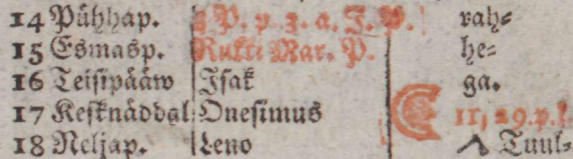 14 Pühhap. 3 P. p. 3. a. J. P. rah⸗
15 Esmasp. Rukki Mar. P. he⸗
16 Teisipääw Isak ga.
17 Kesknäddal Onesimus 11, 29. p. l.
18 Neljap. Leno Tuul⸗